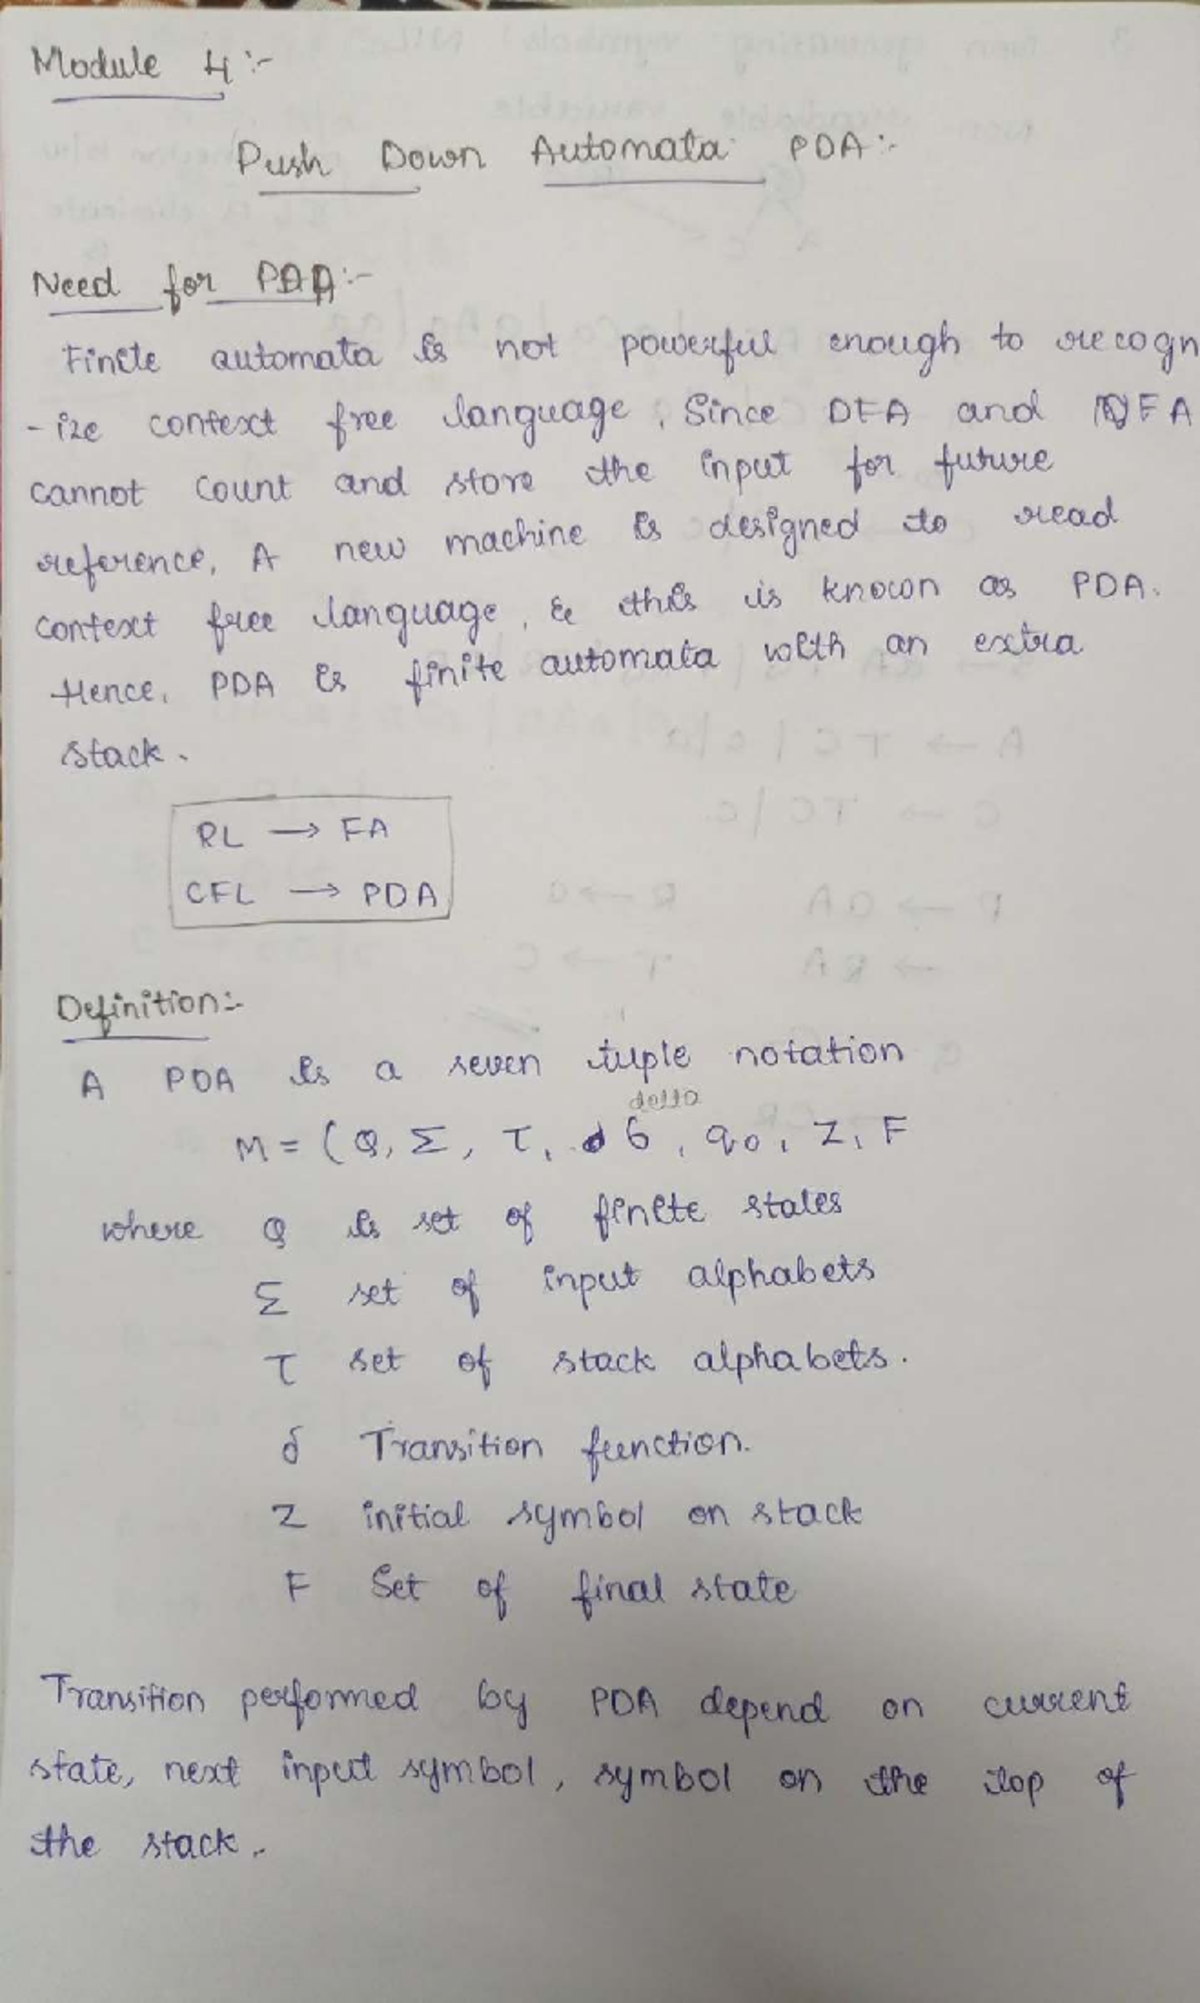 Module 4:-
Push Down Automata PDA:-
Need for PDA:-
Finite automata is not powerful enough to recogn
-ize context free language, Since DFA and NFA
cannot count and store the input for future
reference, A new machine is designed to read
context free language, & this is known as PDA.
Hence, PDA is finite automata with an extra
stack.
RL → FA
CFL → PDA
Definition:-
A PDA is a seven tuple notation
delta
M = (Q, Σ, τ, δ, q0, Z, F
where Q is set of finite states
Σ set of input alphabets
τ set of stack alphabets.
δ Transition function.
Z initial symbol on stack
F Set of final state
Transition performed by PDA depend on current
state, next input symbol, symbol on the top of
the stack.